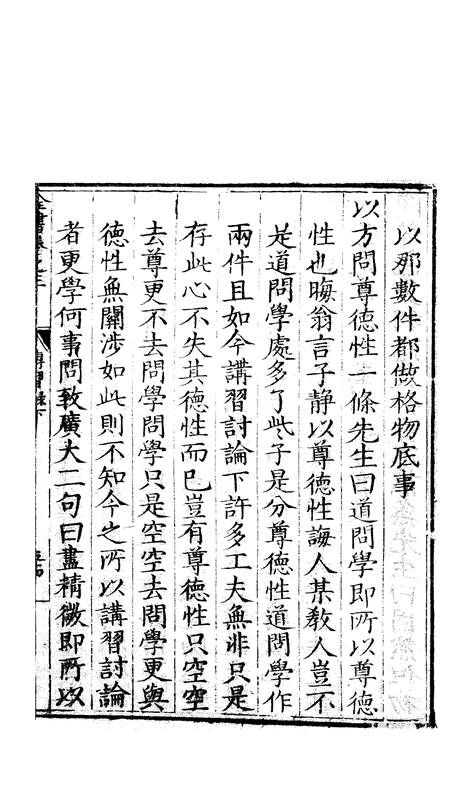 以那數件都做格物底事
以方問尊德性一條先生曰道問學即所以尊德
性也晦翁言子靜以尊德性誨人某教人豈不
是道問學處多了些子是分尊德性道問學作
兩件且如今講習討論下許多工夫無非只是
存此心不失其德性而已豈有尊德性只空空
去尊更不去問學問學只是空空去問學更與
德性無關涉如此則不知今之所以講習討論
者更學何事問致廣大二句曰盡精微即所以
傳習錄下